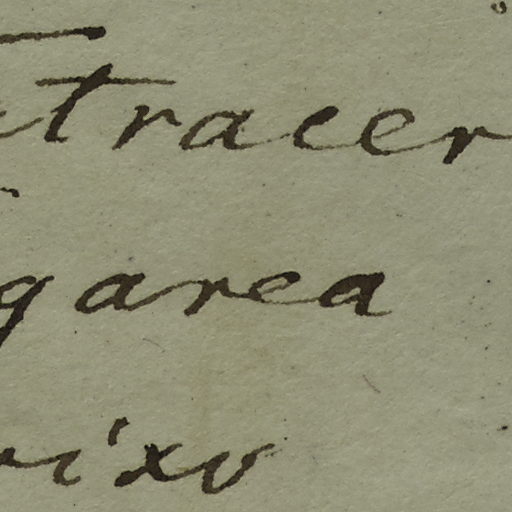 tracer
garea
ixo